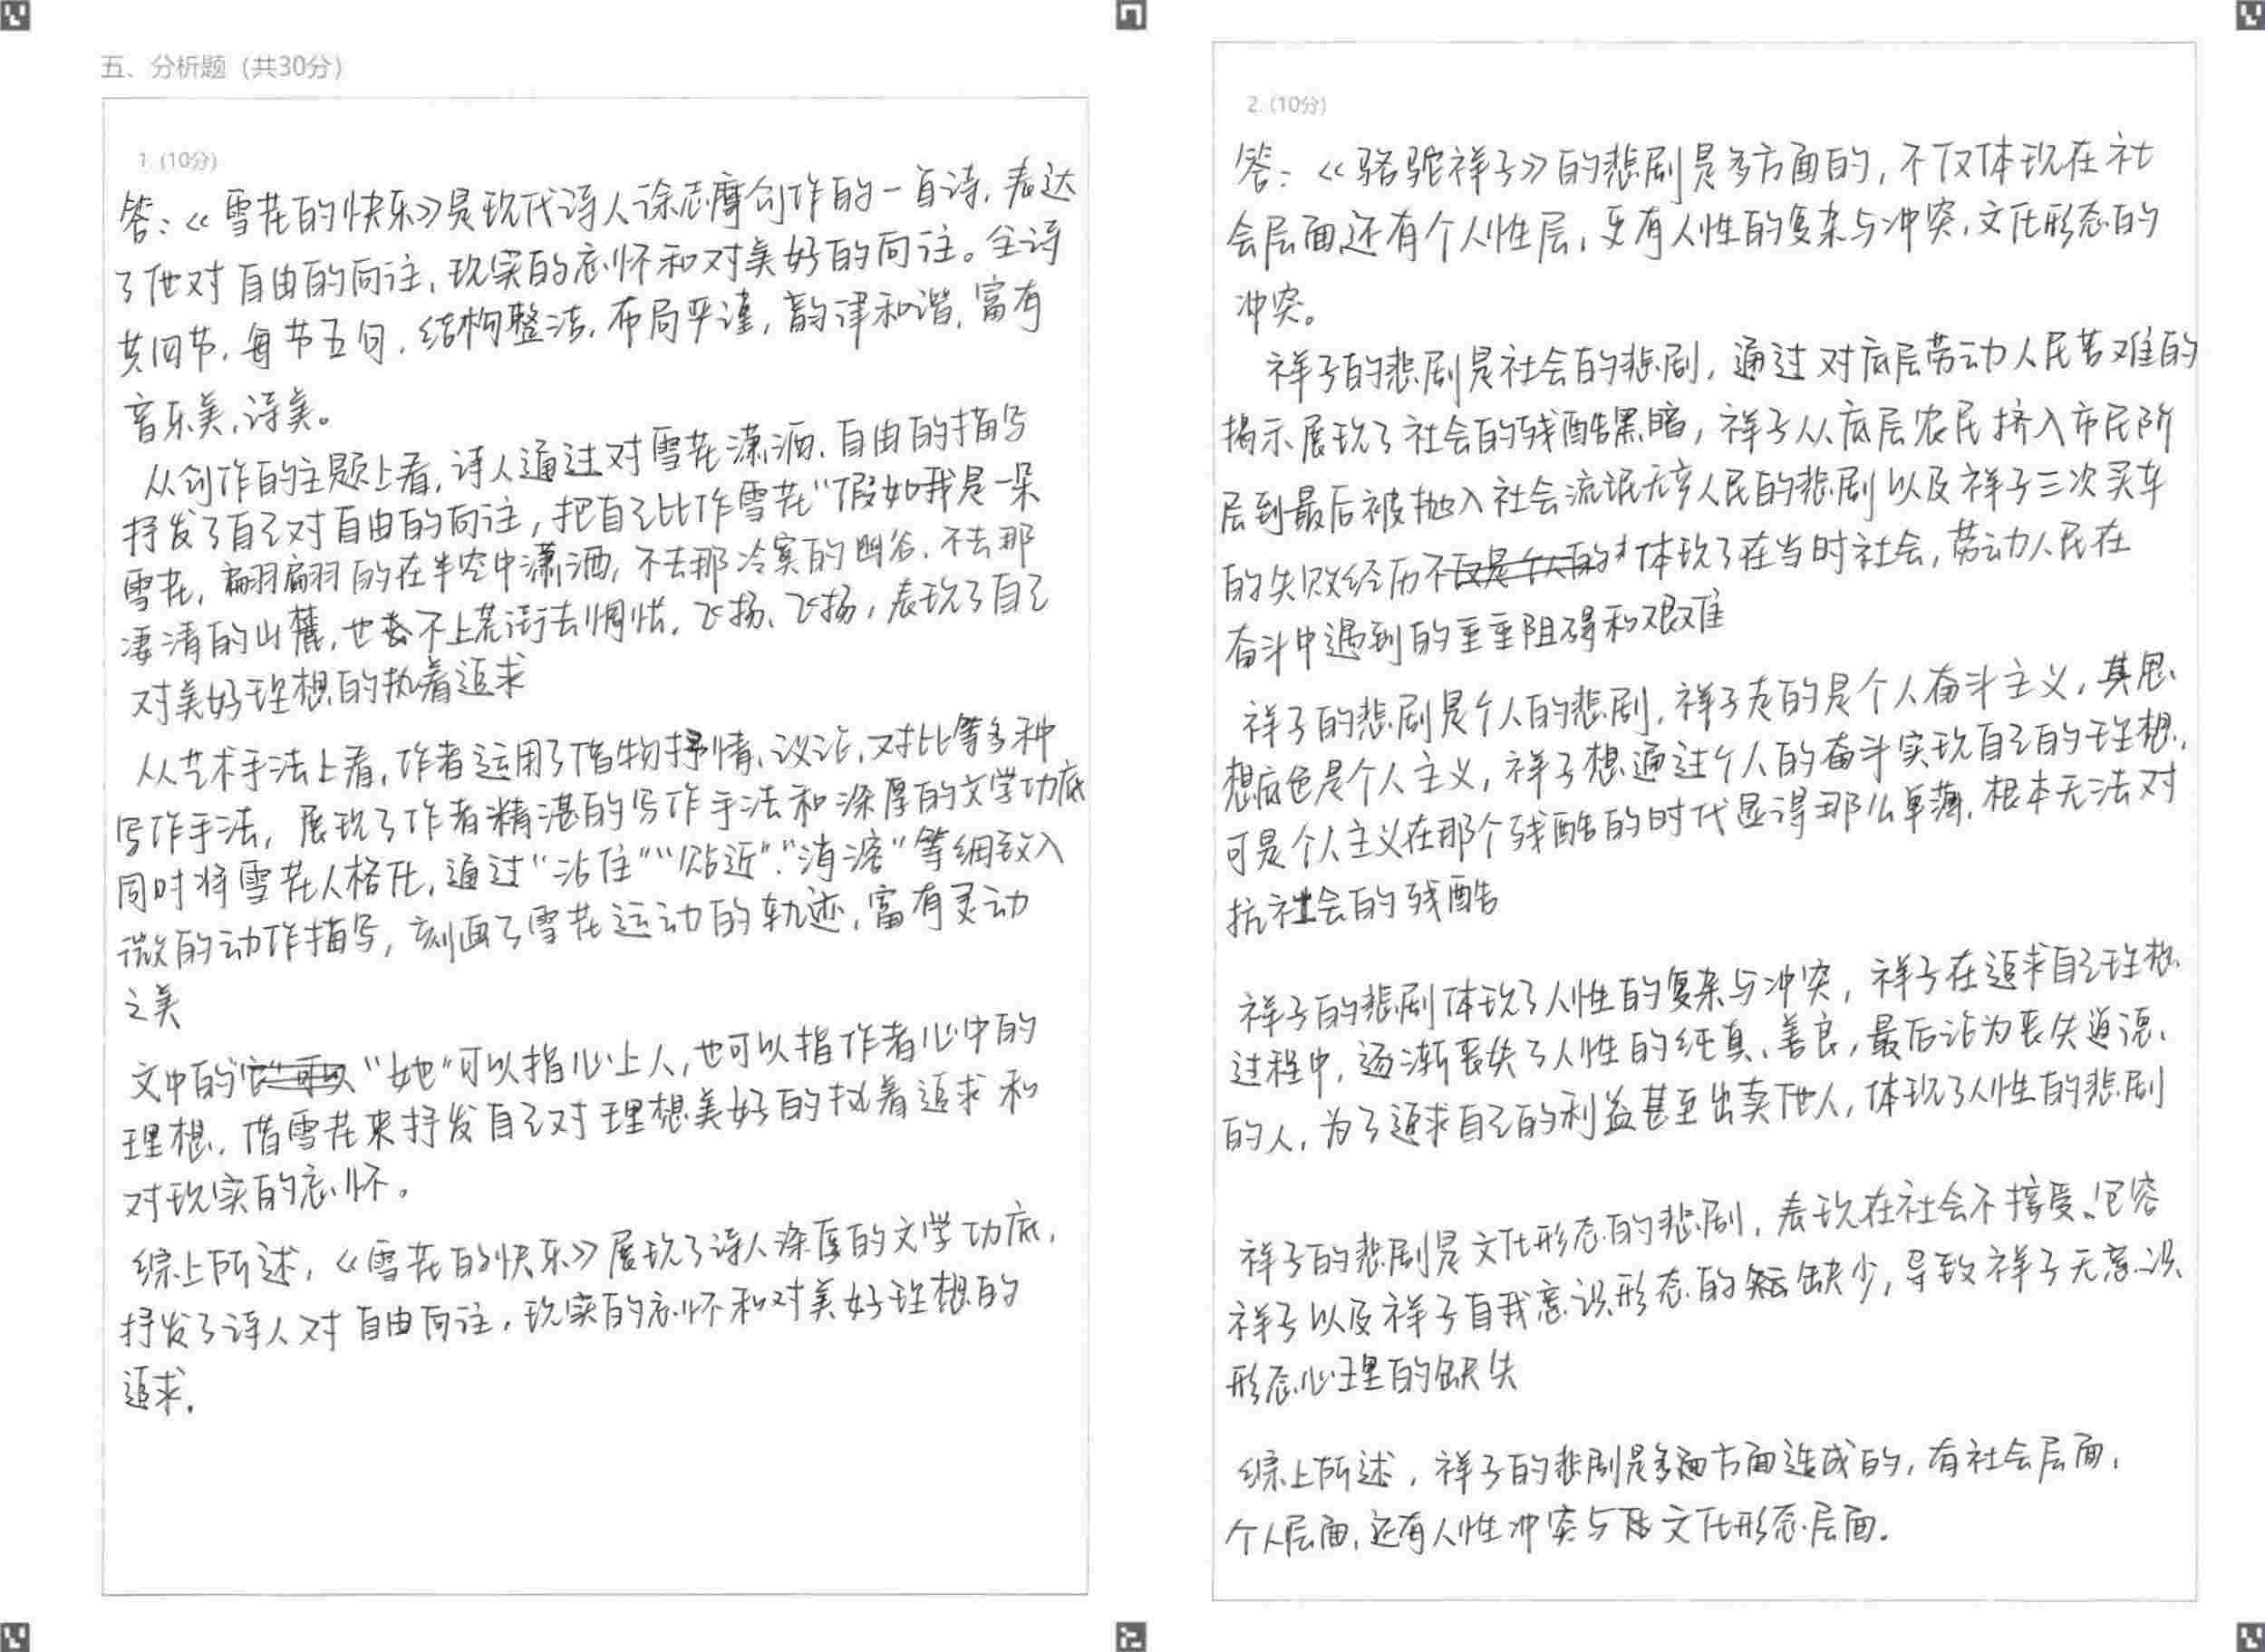 五、分析题（共30分）
1.（10分）
答：《雪花的快乐》是现代诗人徐志摩创作的一首诗，表达
了他对自由的向往，现实的忘怀和对美好的向往。全诗
共四节，每节五句，结构整洁，布局严谨，韵律和谐，富有
音乐美，诗美。
从创作的主题上看，诗人通过对雪花潇洒、自由的描写
抒发了自己对自由的向往，把自己比作雪花“假如我是一朵
雪花，翩翩的在半空中潇洒，不去那冷寞的幽谷，不去那
凄清的山麓，也不上荒街去惆怅，飞扬、飞扬，表现了自己
对美好理想的执着追求
从艺术手法上看，作者运用了借物抒情、议论，对比等多种
写作手法，展现了作者精湛的写作手法和深厚的文学功底
同时将雪花人格化，通过“沾住”“贴近”“消溶”等细致入
微的动作描写，刻画了雪花运动的轨迹，富有灵动
之美
文中的“她”可以指心上人，也可以指作者心中的
理想，借雪花来抒发自己对理想美好的执着追求和
对现实的忘怀。
综上所述，《雪花的快乐》展现了诗人深厚的文学功底，
抒发了诗人对自由向往，现实的忘怀和对美好理想的
追求。
2.（10分）
答：《骆驼祥子》的悲剧是多方面的，不仅体现在社
会层面还有个人性层，更有人性的复杂与冲突，文化形态的
冲突。
祥子的悲剧是社会的悲剧，通过对底层劳动人民苦难的
揭示展现了社会的残酷黑暗，祥子从底层农民挤入市民阶
层到最后被抛入社会流氓无产人民的悲剧以及祥子三次买车
的失败经历不体现了在当时社会，劳动人民在
奋斗中遇到的重重阻碍和艰难
祥子的悲剧是个人的悲剧，祥子走的是个人奋斗主义，其思
想底色是个人主义，祥子想通过个人的奋斗实现自己的理想，
可是个人主义在那个残酷的时代显得那么单薄，根本无法对
抗社会的残酷
祥子的悲剧体现了人性的复杂与冲突，祥子在追求自己理想
过程中，逐渐丧失了人性的纯真、善良，最后沦为丧失道德、
的人，为了追求自己的利益甚至出卖他人，体现了人性的悲剧
祥子的悲剧是文化形态的悲剧，表现在社会不接受、包容
祥子以及祥子自我意识形态的缺少，导致祥子无意识
形态心理的缺失
综上所述，祥子的悲剧是多方面造成的，有社会层面，
个人层面，还有人性冲突与文化形态层面。